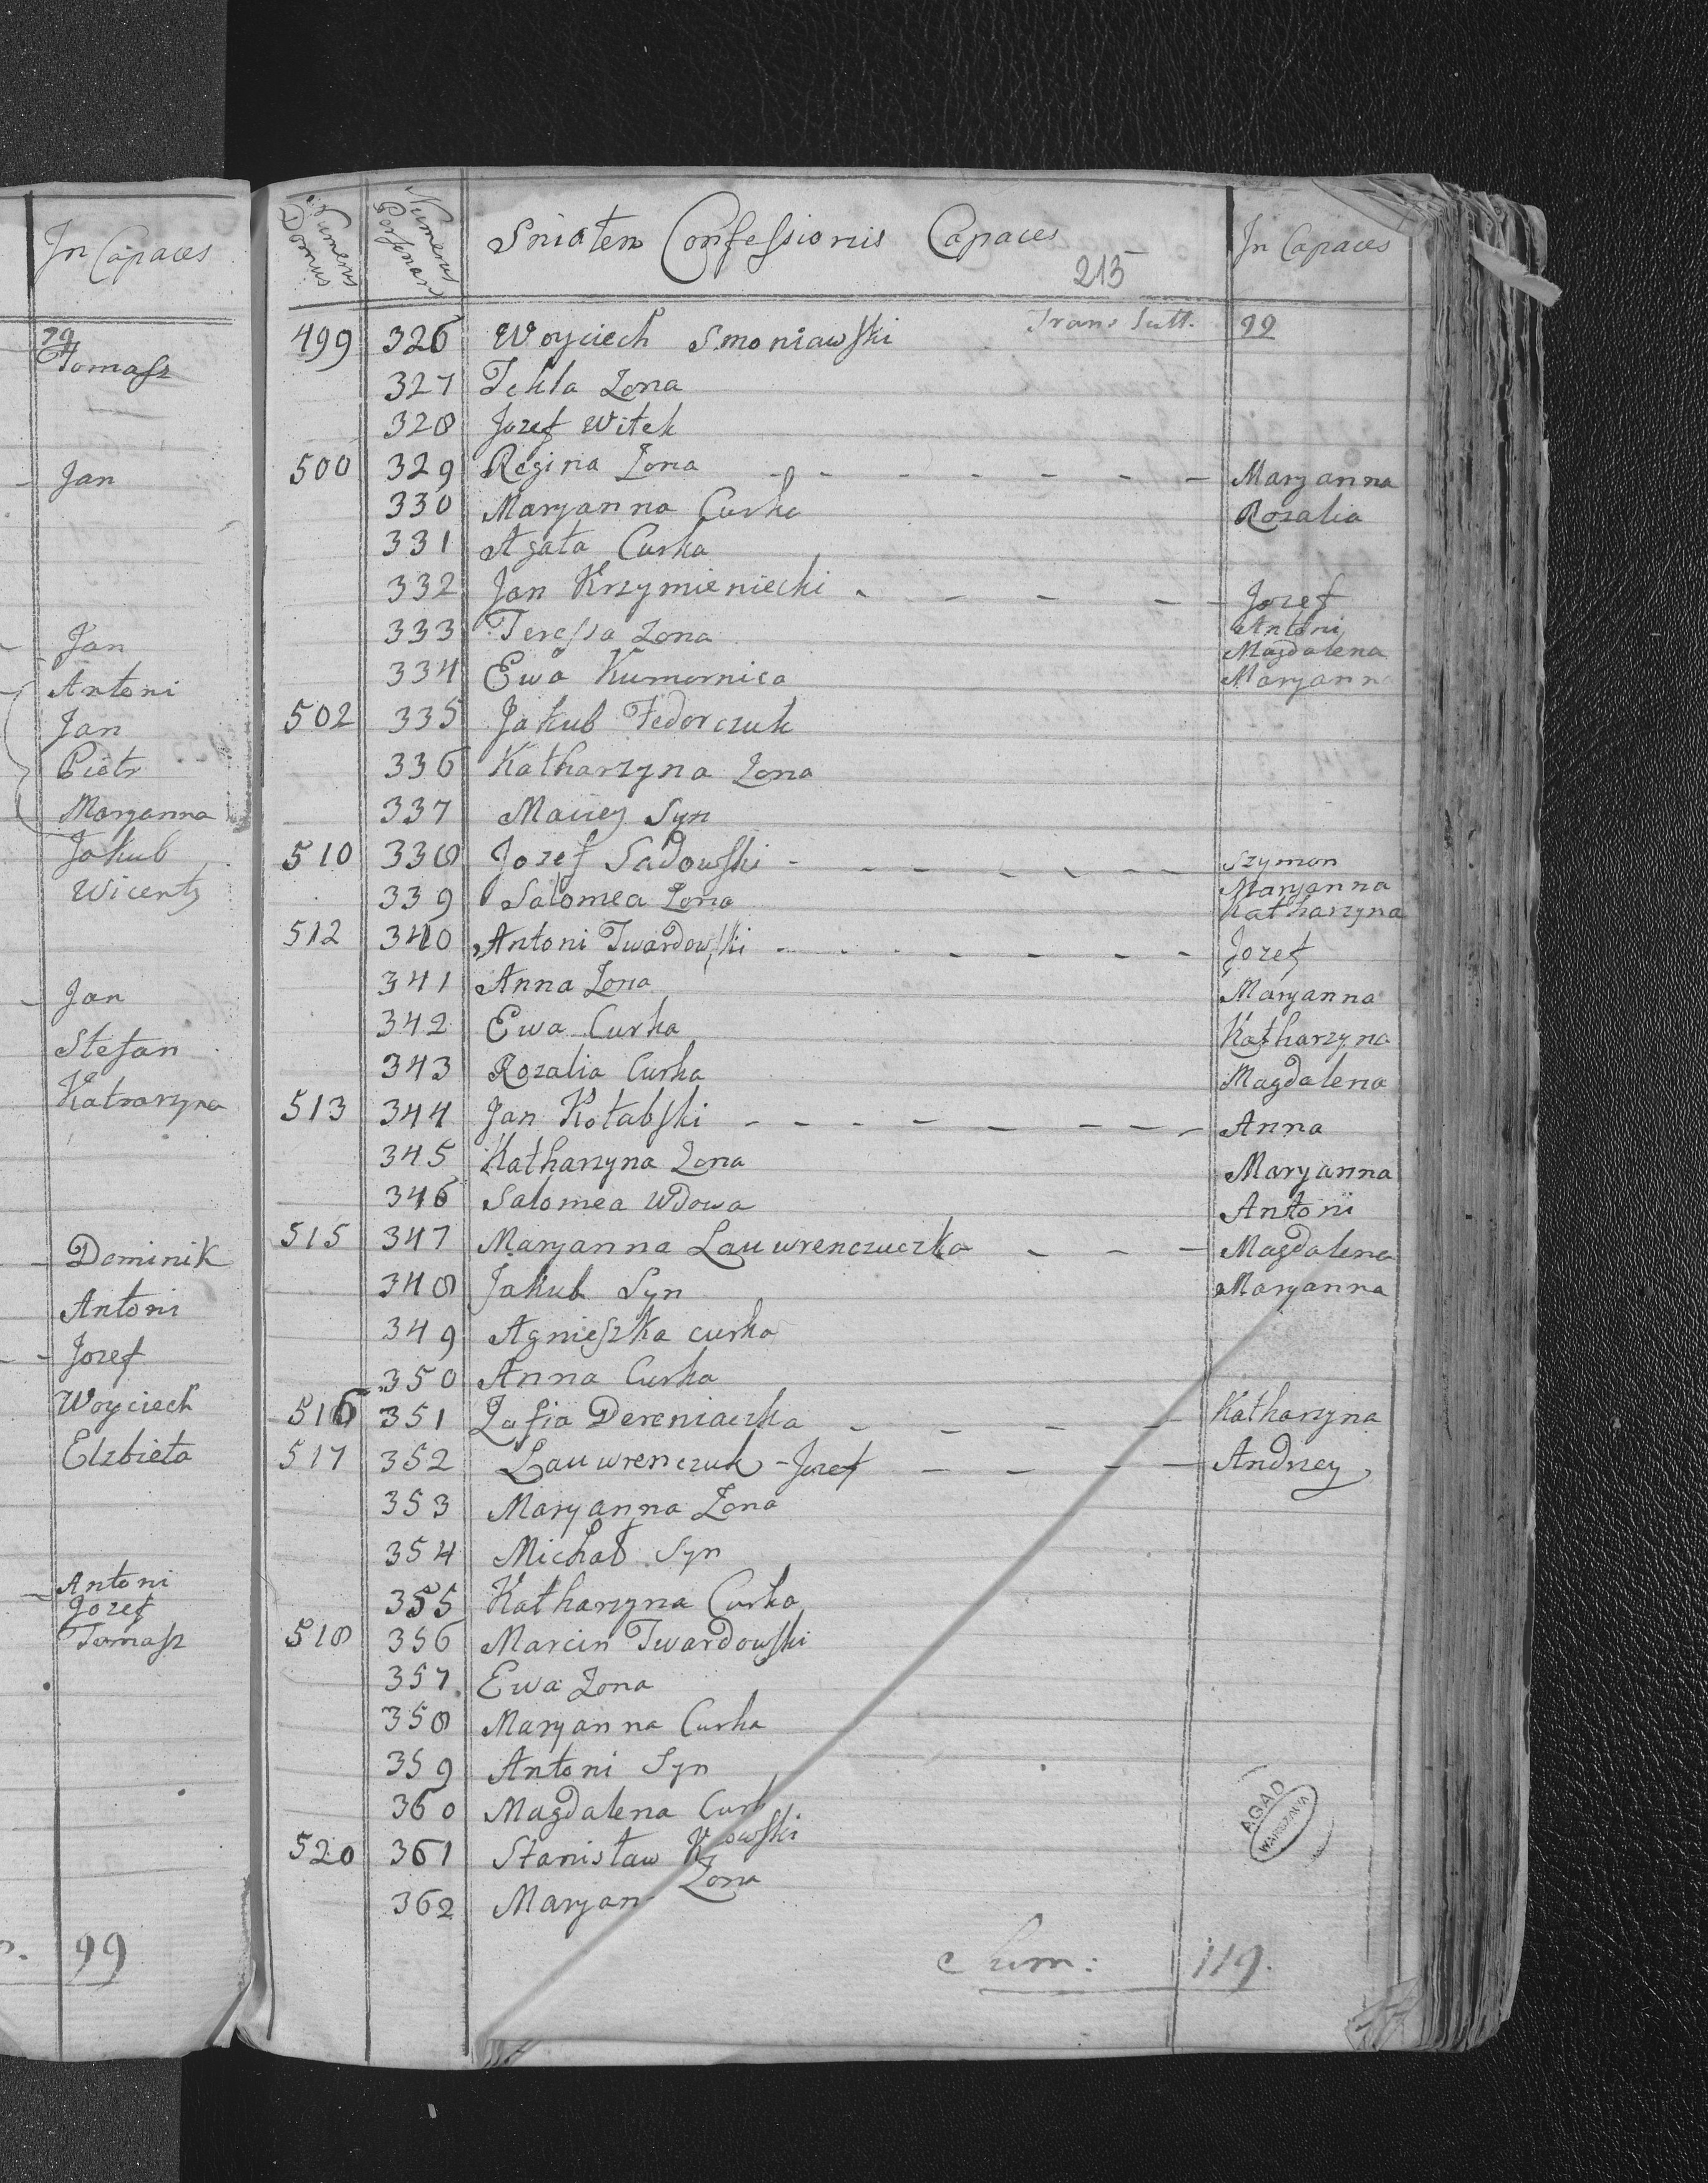 In Capaces
79
Tomasz
Jan
Jan
Antoni
Jan
Piotr
Maryanna
Jakub
Wicenty
Jan
Stefan
Katarzyna
Dominik
Antoni
Jozef
Woyciech
Elzbieta
Antoni
Jozef
Tomasz
99
Numerus Domus
Numerus Personar
Sniaten Confessionis Capaces
In Capaces
215
Trans Sutt. 99
499 326 Woyciech Smoniawski
327 Tekla Zona
328 Jozef Witek
500 329 Regina Zona - - - - - - Maryanna
330 Maryanna Curka Rozalia
331 Agata Curka
332 Jan Krzymieniecki - - - - - Jozef
333 Teressa Zona Antoni
Magdalena
334 Ewa Kumornica Maryanna
502 335 Jakub Fedorczuk
336 Katharzyna Zona
337 Maciey Syn
510 338 Jozef Sadowski - - - - - - - Szymon
Maryanna
339 Salomea Zona Katharzyna
512 340 Antoni Twardowski - - - - - - Jozef
341 Anna Zona Maryanna
342 Ewa Curka Katharzyna
343 Rozalia Curka Magdalena
513 344 Jan Kotabski - - - - - - - - Anna
345 Katharzyna Zona Maryanna
346 Salomea Wdowa Antoni
515 347 Maryanna Lauwrenczuczka - - - Magdalena
348 Jakub Syn Maryanna
349 Agnieszka curka
350 Anna Curka
516 351 Zofia Dereniaczka - - - - Katharzyna
517 352 Lauwrenczuk - Jozef - - - - Andrzey
353 Maryanna Zona
354 Michał Syn
355 Katharzyna Curka
518 356 Marcin Twardowski
357 Ewa Zona
358 Maryanna Curka
359 Antoni Syn
360 Magdalena Curk
520 361 Stanisław K owski
362 Maryan Zona
Sum: 119.
AGAD
WARSZAWA